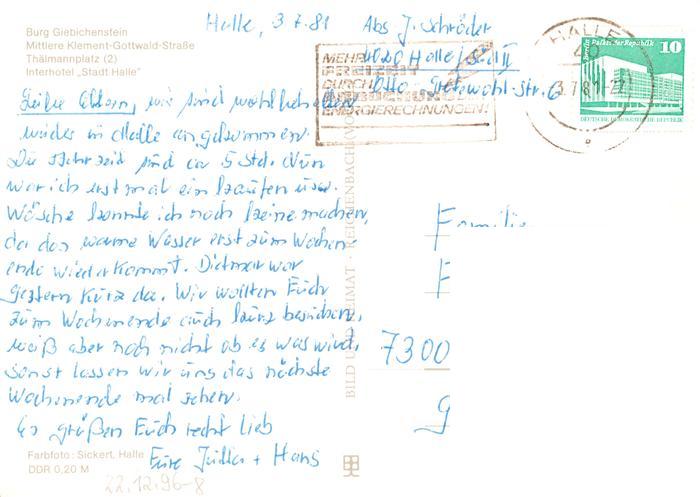 Burg Giebichenstein
Mittlere Klement-Gottwald-Straße
Thälmannplatz (2)
Interhotel „Stadt Halle"
Halle, 3.7.81
Abs J. Schröder
4020 Halle/Süd II
Otto - Str. 6
MEHR
FREIZEIT
DURCH
ENERGIERECHNUNGEN!
HALLE
40
3.7.81-22
Palast der Republik
10
DEUTSCHE DEMOKRATISCHE REPUBLIK
Liebe Eltern, wir sind wohlbehalten
wieder in Halle angekommen.
Die Fahrzeit sind ca 5 Std. Nun
war ich erstmal einkaufen usw.
Wäsche konnte ich noch keine machen,
da das warme Wasser erst zum Wochen-
ende wiederkommt. Dietmar war
gestern kurz da. Wir wollten Euch
zum Wochenende auch kurz besuchen,
weiß aber noch nicht ob es was wird,
sonst lassen wir uns das nächste
Wochenende mal sehen.
Es grüßen Euch recht lieb
Eure + Hans
Familie
F
7300
G
BILD UND HEIMAT · REICHENBACH (VO
Farbfoto: Sickert, Halle
DDR 0,20 M
22.12.96-8